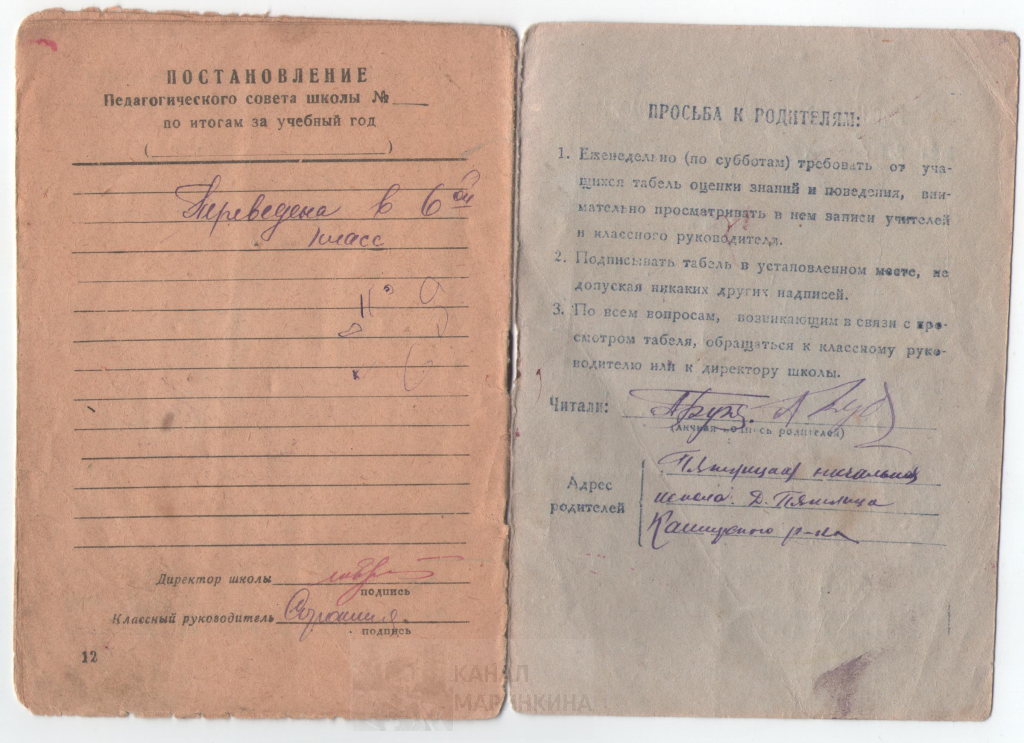 ПОСТАНОВЛЕНИЕ
Педагогического совета школы №
по итогам за учебный год
( )
Переведена в 6ой
класс
Директор школы
подпись
Классный руководитель
подпись
12
ПРОСЬБА К РОДИТЕЛЯМ:
1. Еженедельно (по субботам) требовать от уча-
щихся табель оценки знаний и поведения, вни-
мательно просматривать в нем записи учителей
и классного руководителя.
2. Подписывать табель в установленном месте, не
допуская никаких других надписей.
3. По всем вопросам, возникающим в связи с про-
смотром табеля, обращаться к классному руко-
водителю или к директору школы.
Читали:
(личная подпись родителей)
Адрес
родителей
начальная
школа. Д. Пятница
р-на
КАНАЛ
МАРИНКИНА